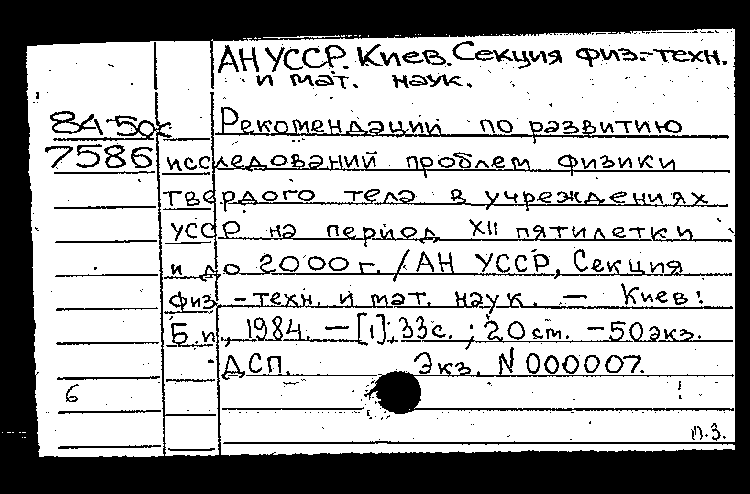 АН УССР. Киев. Секция физ.-техн.
и мат. наук.
84-50с
7586
Рекомендации по развитию
исследований проблем физики
твердого тела в учреждениях
УССР на период XII пятилетки
и до 2000 г. / АН УССР, Секция
физ.-техн. и мат. наук. — Киев:
Б.и., 1984. — [1], 33с. ; 20 см. — 50 экз.
ДСП. Экз. N 000007.
6
п.з.